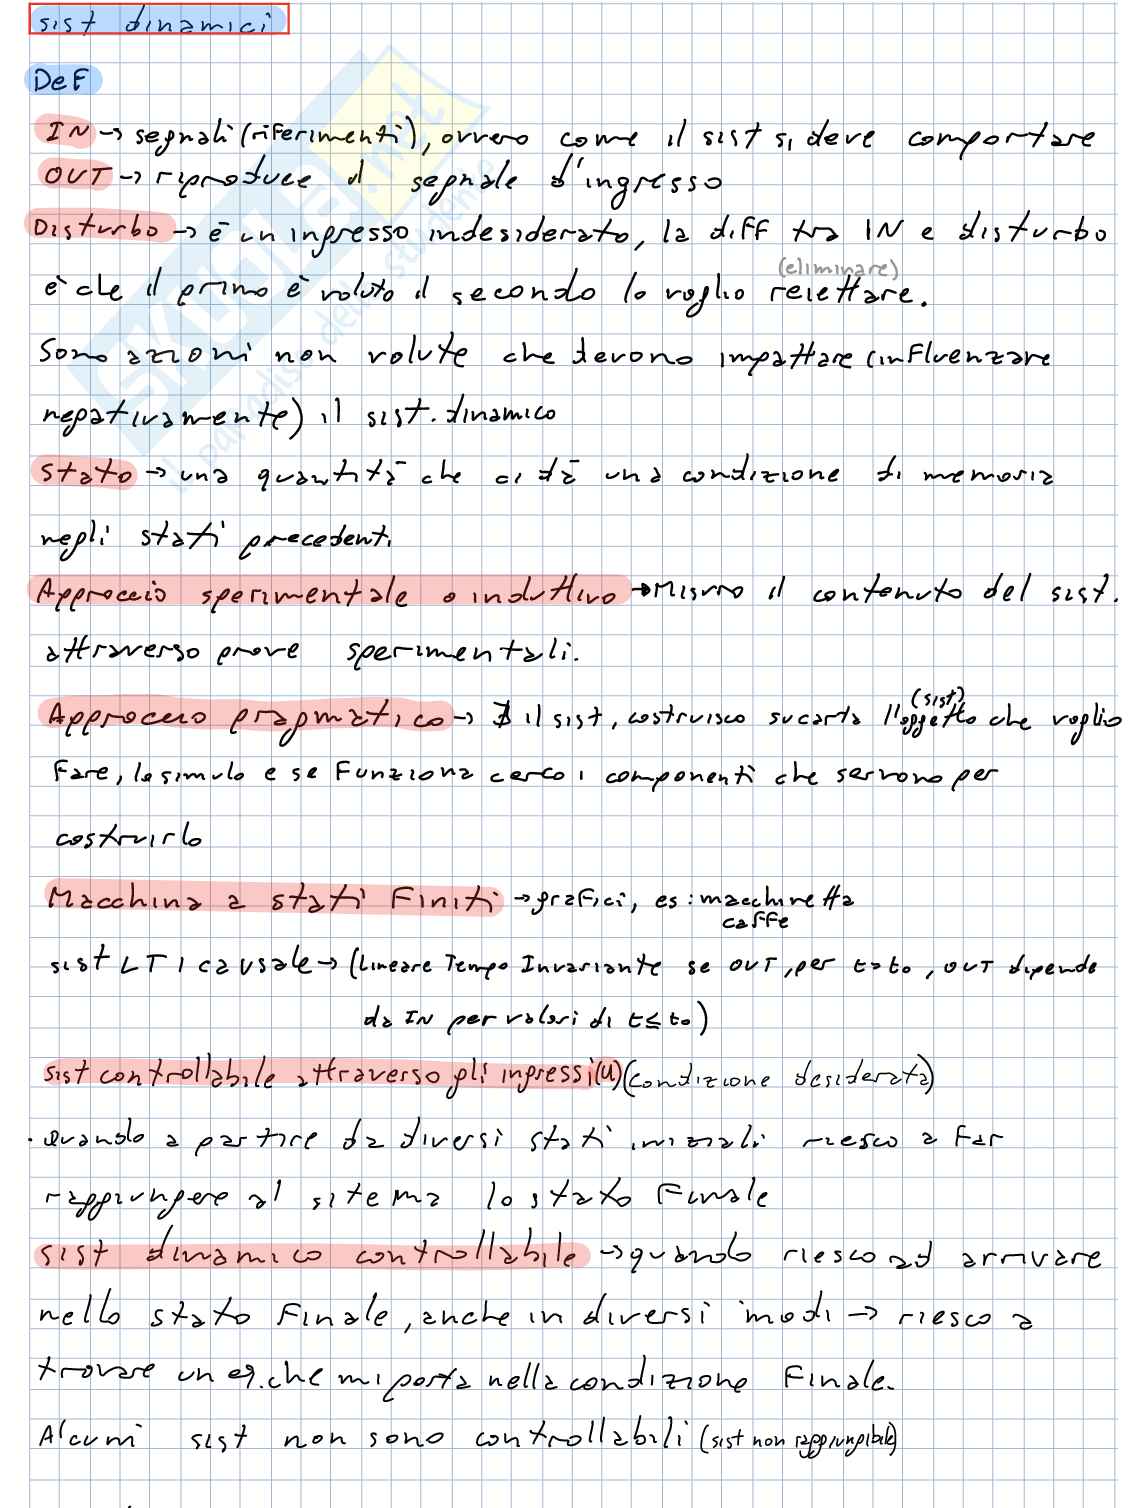 sist dinamici
DeF
IN → segnali (riferimenti), ovvero come il sist si deve comportare
OUT → riproduce il segnale d'ingresso
Disturbo → è un ingresso indesiderato, la diff tra IN e disturbo
(eliminare)
è che il primo è voluto il secondo lo voglio reiettare.
Sono azioni non volute che devono impattare (influenzare
negativamente) il sist. dinamico
stato → una quantità che ci dà una condizione di memoria
negli stati precedenti
Approccio sperimentale o induttivo → Misuro il contenuto del sist.
attraverso prove sperimentali.
(sist)
Approccio pragmatico → ∄ il sist, costruisco su carta l'oggetto che voglio
fare, lo simulo e se funziona cerco i componenti che servono per
costruirlo
Macchina a stati finiti → grafici, es: macchinetta
caffe
sist LTI causale → (Lineare Tempo Invariante se OUT, per t=t₀, OUT dipende
da IN per valori di t≤t₀)
sist controllabile attraverso gli ingressi (u) (condizione desiderata)
. Quando a partire da diversi stati iniziali riesco a far
raggiungere al sitema lo stato finale
sist dinamico controllabile → quando riesco ad arrivare
nello stato finale, anche in diversi modi → riesco a
trovare un eq. che mi porta nella condizione finale.
Alcuni sist non sono controllabili (sist non raggiungibile)
SKUOLA.net
il paradiso dello studente